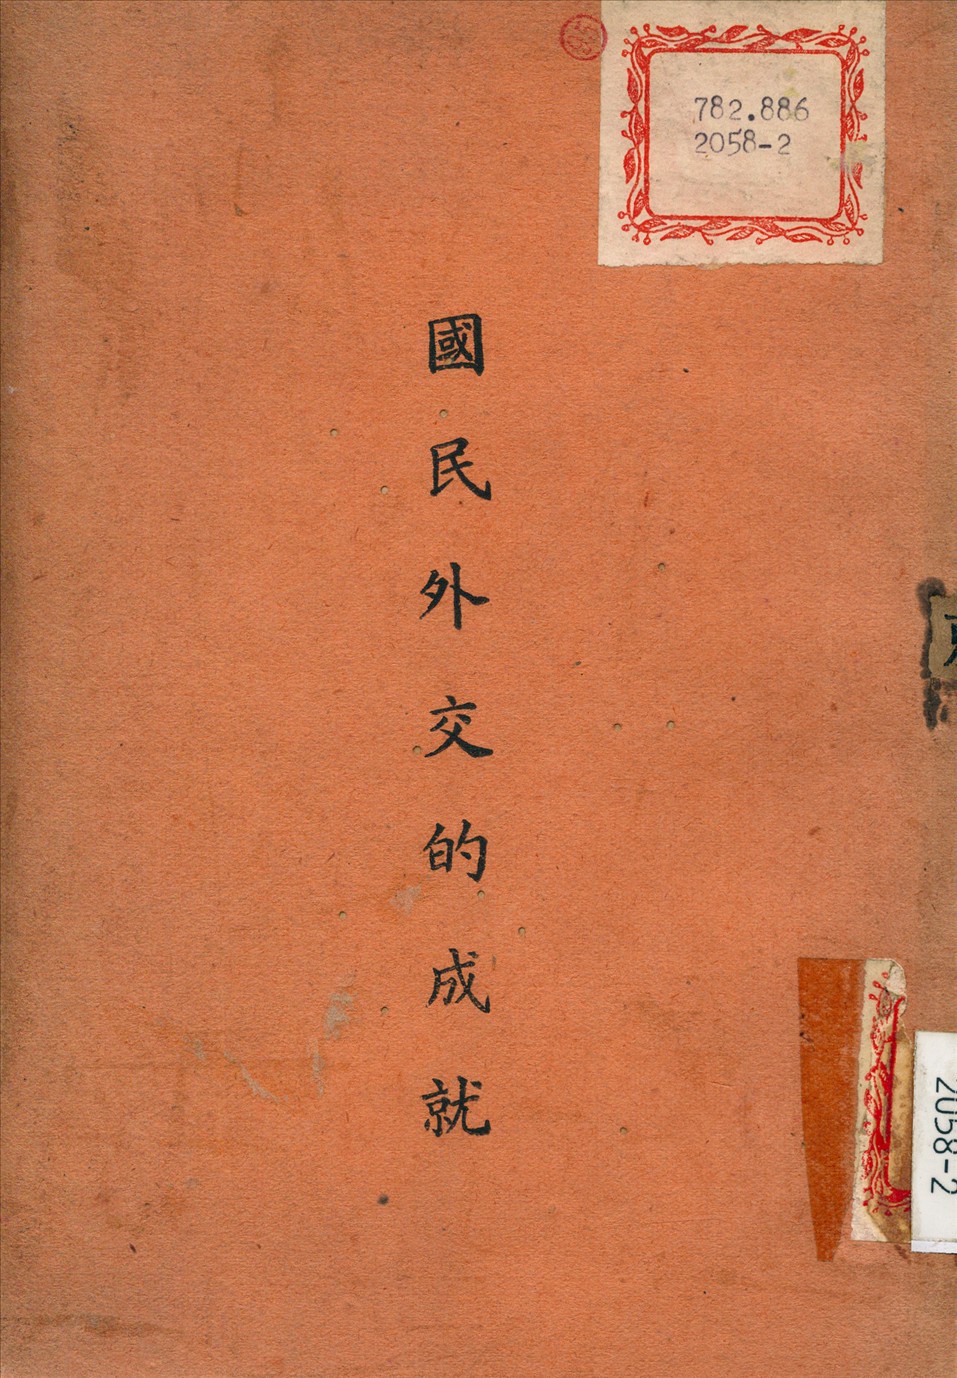 782.886
2058-2
國民外交的成就
2058-2